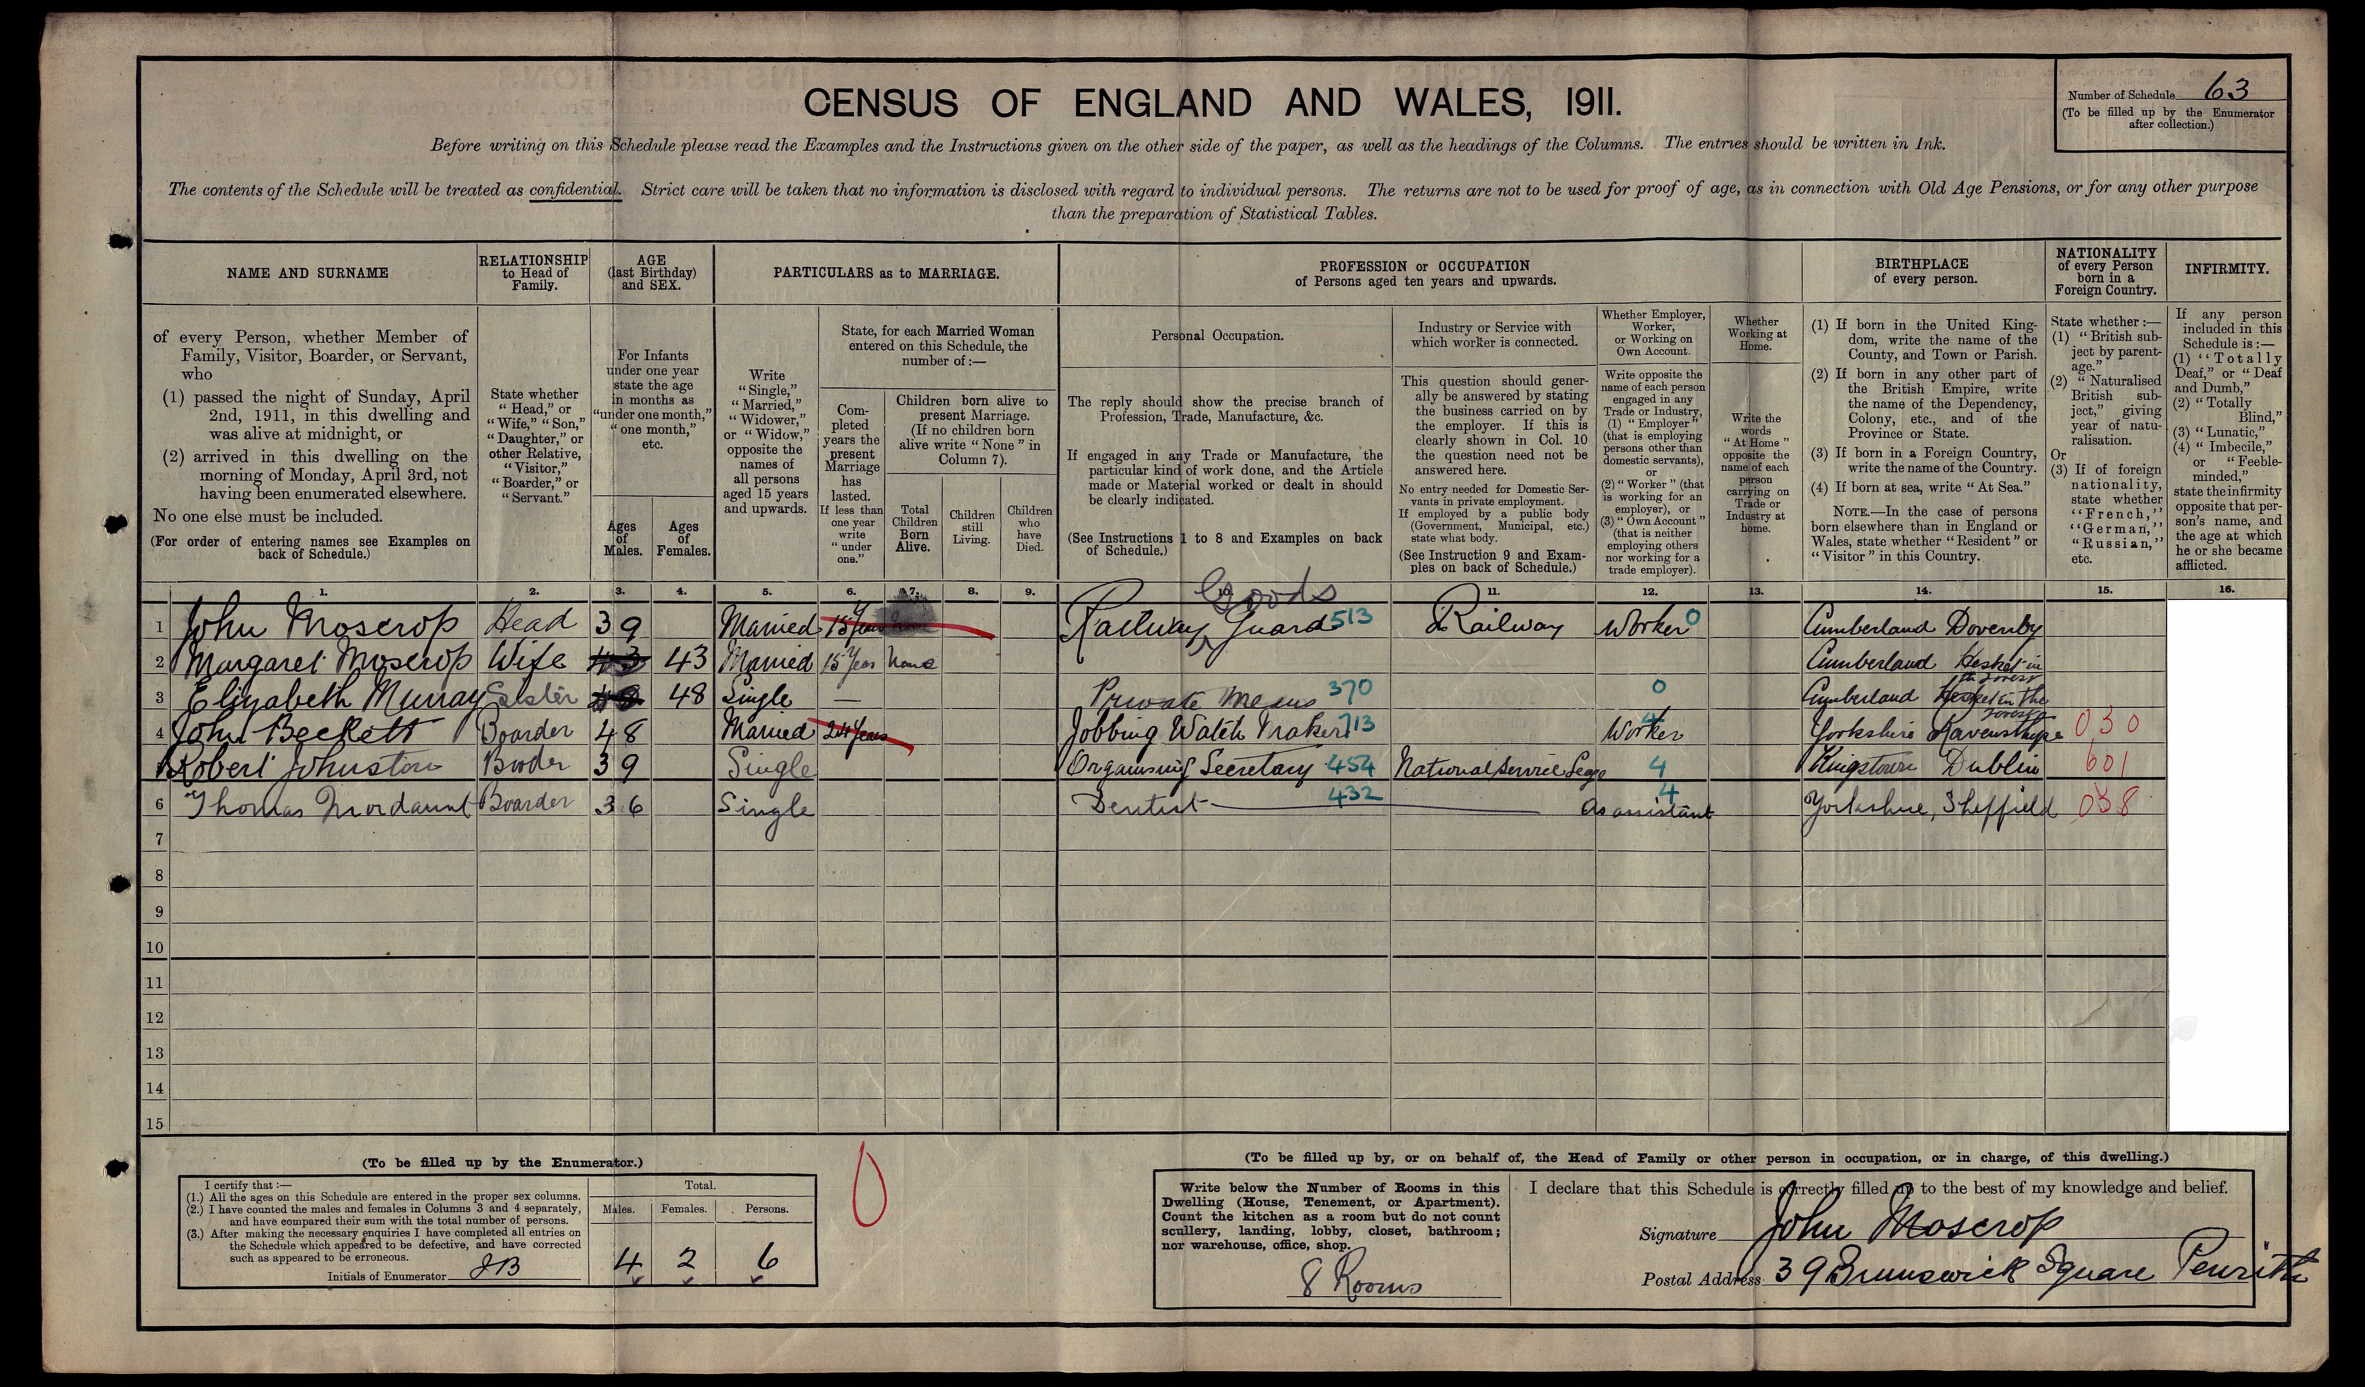 CENSUS OF ENGLAND AND WALES, 1911.
Number of Schedule 63
(To be filled up by the Enumerator
after collection.)
Before writing on this Schedule please read the Examples and the Instructions given on the other side of the paper, as well as the headings of the Columns. The entries should be written in Ink.
The contents of the Schedule will be treated as confidential. Strict care will be taken that no information is disclosed with regard to individual persons. The returns are not to be used for proof of age, as in connection with Old Age Pensions, or for any other purpose
than the preparation of Statistical Tables.
NAME AND SURNAME
of every Person, whether Member of
Family, Visitor, Boarder, or Servant,
who
(1) passed the night of Sunday, April
2nd, 1911, in this dwelling and
was alive at midnight, or
(2) arrived in this dwelling on the
morning of Monday, April 3rd, not
having been enumerated elsewhere.
No one else must be included.
(For order of entering names see Examples on
back of Schedule.)
RELATIONSHIP
to Head of
Family.
State whether
"Head," or
"Wife," "Son,"
"Daughter," or
other Relative,
"Visitor,"
"Boarder," or
"Servant."
AGE
(last Birthday)
and SEX.
For Infants
under one year
state the age
in months as
"under one month,"
"one month,"
etc.
Ages
of
Males.
Ages
of
Females.
PARTICULARS as to MARRIAGE.
Write
"Single,"
"Married,"
"Widower,"
or "Widow,"
opposite the
names of
all persons
aged 15 years
and upwards.
State, for each Married Woman
entered on this Schedule, the
number of :—
Com-
pleted
years the
present
Marriage
has
lasted.
If less than
one year
write
"under
one."
Children born alive to
present Marriage.
(If no children born
alive write "None" in
Column 7).
Total
Children
Born
Alive.
Children
still
Living.
Children
who
have
Died.
PROFESSION or OCCUPATION
of Persons aged ten years and upwards.
Personal Occupation.
The reply should show the precise branch of
Profession, Trade, Manufacture, &c.
If engaged in any Trade or Manufacture, the
particular kind of work done, and the Article
made or Material worked or dealt in should
be clearly indicated.
(See Instructions 1 to 8 and Examples on back
of Schedule.)
Industry or Service with
which worker is connected.
This question should gener-
ally be answered by stating
the business carried on by
the employer. If this is
clearly shown in Col. 10
the question need not be
answered here.
No entry needed for Domestic Ser-
vants in private employment.
If employed by a public body
(Government, Municipal, etc.)
state what body.
(See Instruction 9 and Exam-
ples on back of Schedule.)
Whether Employer,
Worker,
or Working on
Own Account.
Write opposite the
name of each person
engaged in any
Trade or Industry,
(1) "Employer"
(that is employing
persons other than
domestic servants),
or
(2) "Worker" (that
is working for an
employer), or
(3) "Own Account"
(that is neither
employing others
nor working for a
trade employer).
Whether
Working at
Home.
Write the
words
"At Home"
opposite the
name of each
person
carrying on
Trade or
Industry at
home.
BIRTHPLACE
of every person.
(1) If born in the United King-
dom, write the name of the
County, and Town or Parish.
(2) If born in any other part of
the British Empire, write
the name of the Dependency,
Colony, etc., and of the
Province or State.
(3) If born in a Foreign Country,
write the name of the Country.
(4) If born at sea, write "At Sea."
NOTE.—In the case of persons
born elsewhere than in England or
Wales, state whether "Resident" or
"Visitor" in this Country.
NATIONALITY
of every Person
born in a
Foreign Country.
State whether :—
(1) "British sub-
ject by parent-
age."
(2) "Naturalised
British sub-
ject," giving
year of natu-
ralisation.
Or
(3) If of foreign
nationality,
state whether
"French,"
"German,"
"Russian,"
etc.
INFIRMITY.
If any person
included in this
Schedule is :—
(1) "Totally
Deaf," or "Deaf
and Dumb,"
(2) "Totally
Blind,"
(3) "Lunatic,"
(4) "Imbecile,"
or "Feeble-
minded,"
state the infirmity
opposite that per-
son's name, and
the age at which
he or she became
afflicted.
1. 2. 3. 4. 5. 6. 7. 8. 9. 10. 11. 12. 13. 14. 15. 16.
Goods
1 John Moscrop Head 39 Married 15 Years Railway Guard 513 Railway Worker 0 Cumberland Dovenby
2 Margaret Moscrop Wife 43 43 Married 15 Years None Cumberland Hesket in
the Forest
3 Elizabeth Murray Sister 48 48 Single — Private Means 370 0 Cumberland Hesket in the
Forest
4 John Beckett Boarder 48 Married 24 Years Jobbing Watch Maker 713 Worker 4 Yorkshire Ravensthorpe 030
5 Robert Johnston Border 39 Single Organising Secretary 454 National Service League 4 Kingstown Dublin 601
6 Thomas Mordaunt Boarder 36 Single Dentist 432 As assistant 4 Yorkshire, Sheffield 038
7
8
9
10
11
12
13
14
15
(To be filled up by the Enumerator.)
I certify that :—
(1.) All the ages on this Schedule are entered in the proper sex columns.
(2.) I have counted the males and females in Columns 3 and 4 separately,
and have compared their sum with the total number of persons.
(3.) After making the necessary enquiries I have completed all entries on
the Schedule which appeared to be defective, and have corrected
such as appeared to be erroneous.
Initials of Enumerator JB
Total.
Males. Females. Persons.
4 2 6
0
(To be filled up by, or on behalf of, the Head of Family or other person in occupation, or in charge, of this dwelling.)
Write below the Number of Rooms in this
Dwelling (House, Tenement, or Apartment).
Count the kitchen as a room but do not count
scullery, landing, lobby, closet, bathroom;
nor warehouse, office, shop.
8 Rooms
I declare that this Schedule is correctly filled up to the best of my knowledge and belief.
Signature John Moscrop
Postal Address 39 Brunswick Square Penrith